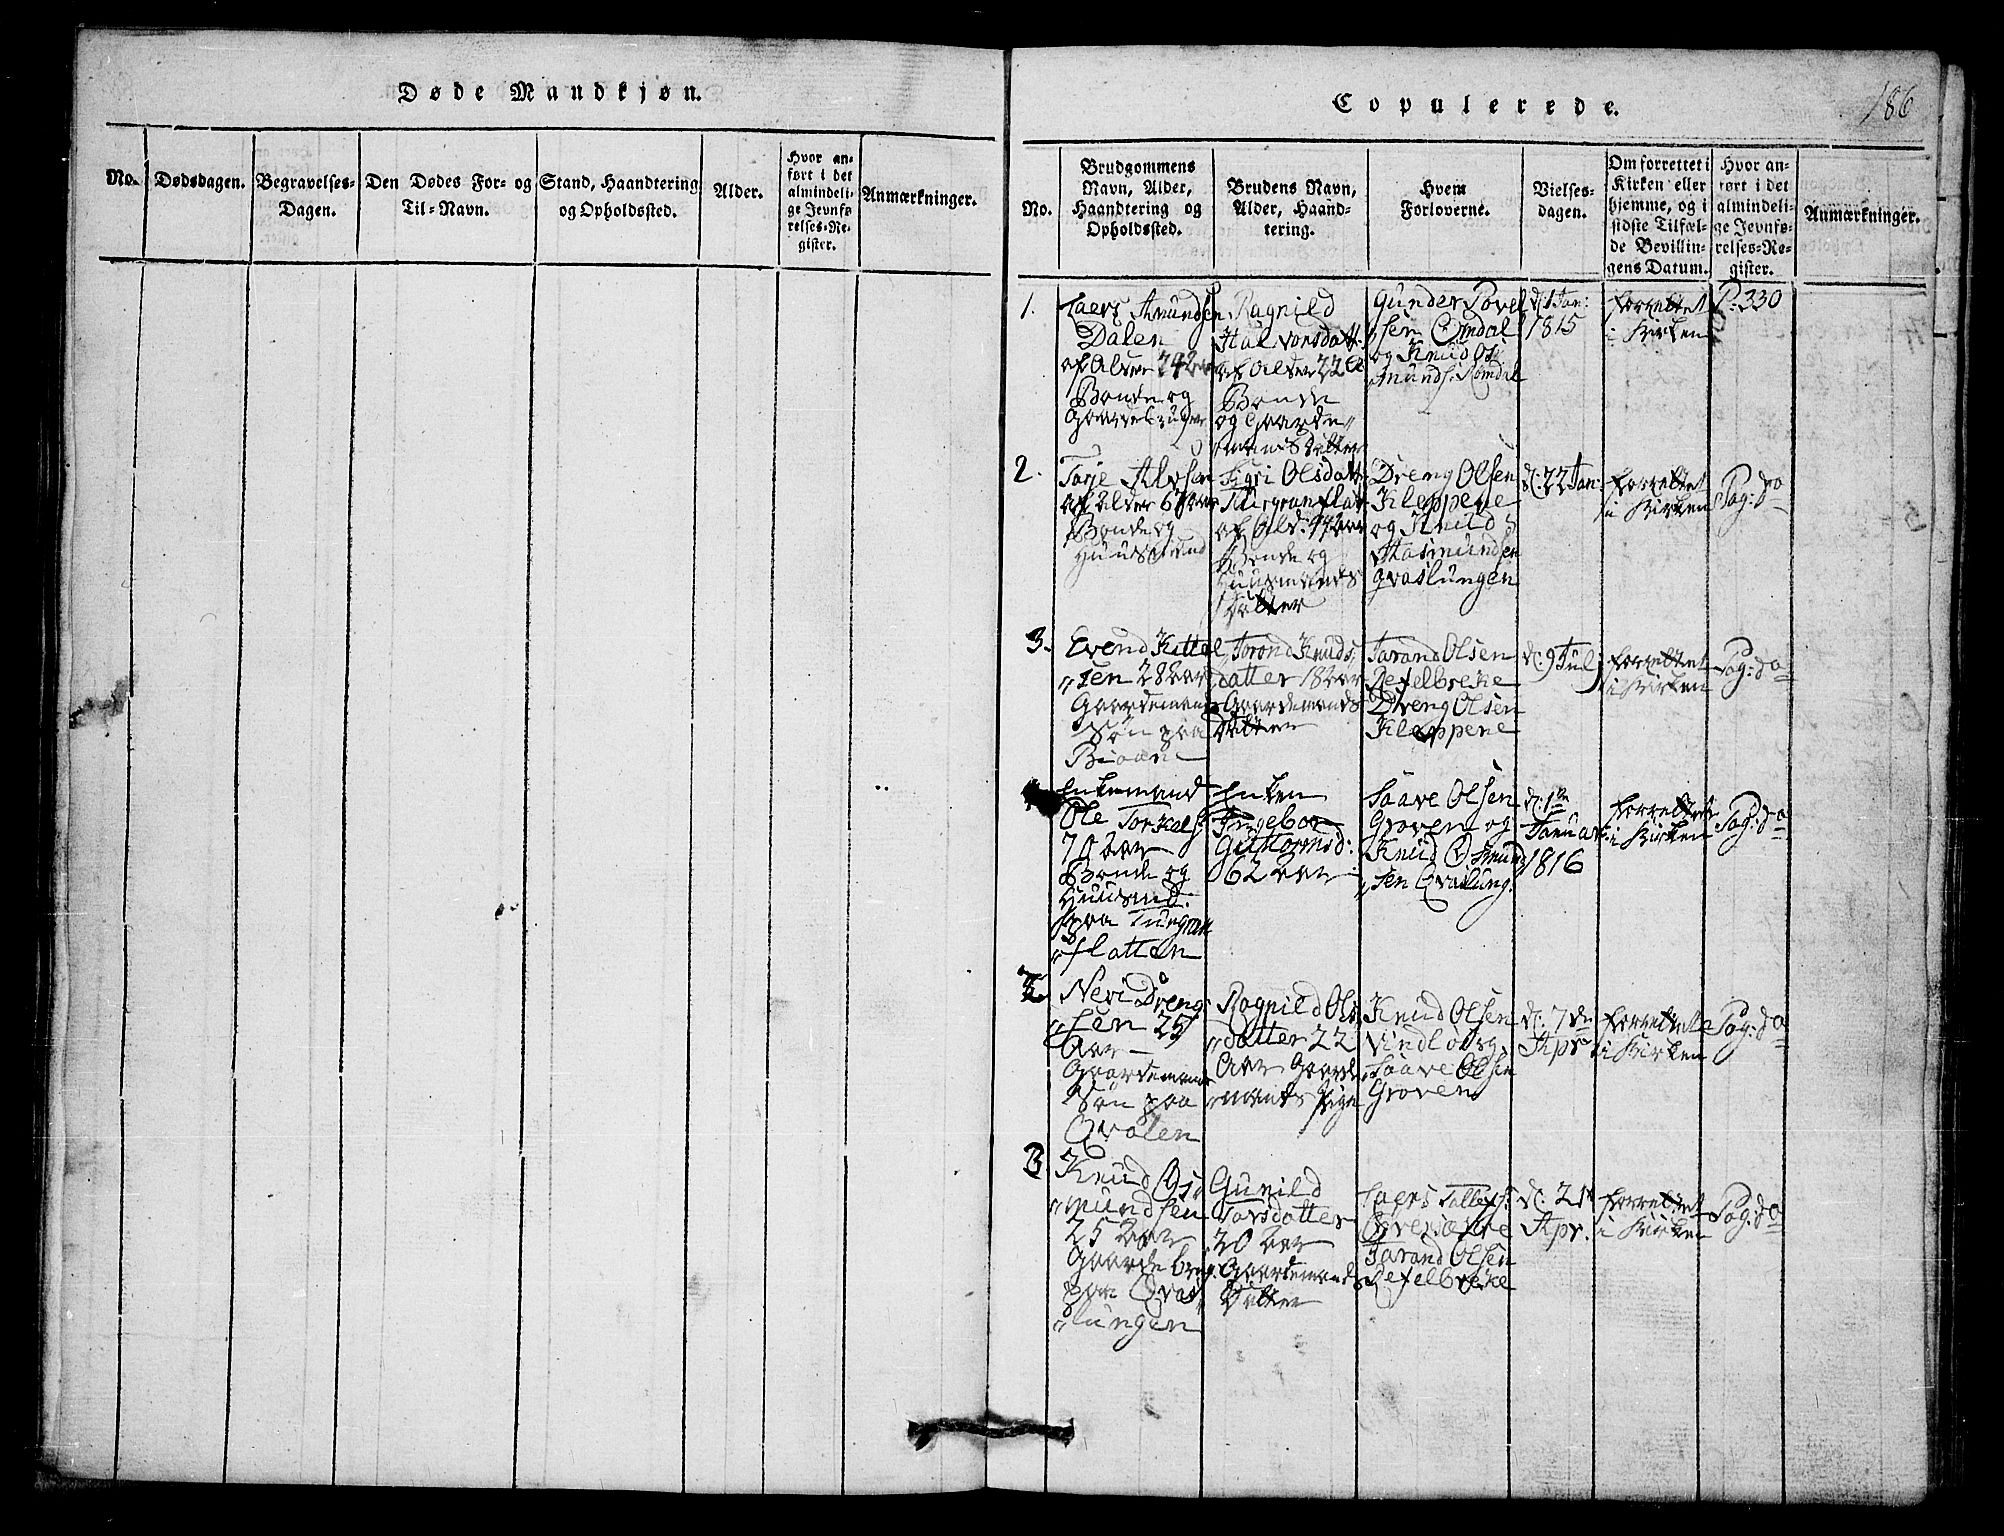 Døde Mandkjøn.
No. Dødsdagen. Begravelses-Dagen. Den Dødes For- og Til-Navn. Stand, Haandtering og Opholdssted. Alder. Hvor anført i det almindelige Jevnførelses-Register. Anmærkninger.
186
Copulerede.
No. Brudgommens Navn, Alder, Haandtering og Opholdssted. Brudens Navn, Alder, Haandtering. Hvem Forloverne. Vielses-dagen. Om forrettet i Kirken eller hjemme, og i sidste Tilfælde Bevillingens Datum. Hvor anført i det almindelige Jevnførelses-Register. Anmærkninger.
1.
Laers Amundsen
Dalen
af Alder
Bonde og
Ragnild
Halvorsdatt.
af Alder 22
Bonde
og Gaarde„
„mands Datter
Gunder Povel
„sen Omdal
og Knud Os
„munds: Romdal
d: 1 Jan:
1815
forrettet
i Kirken
P. 330
2.
Torje Alvsen
af Alder 67 aar
Bonde og
Huusmand
Sigri Olsdatt.
Turgranflat
af Ald: 44 aar
Bonde og
Huusmands
Datter
Dreng Olsen
Kleppene
og Knud
Aasmundsen
Qvaslungen
d: 22 Jan:
forrettet
i Kirken
Pag: do
3.
Evend Kittel
„sen 28 aar
Gaardemands
Søn paa
Bioan
Torond Knuds
datter 18 aar
Gaardemands
Datter
Tarand Olsen
Refelbreke
Dreng Olsen
Kleppene
d: 9 Julj
forrettet
i Kirken
Pag: do
Enkemand
Ole Torkels:
70 aar
Bonde og
Huusmd.
paa Turgran
„flatten
Enken
Ingebor
Guttormsd:
62 aar
Saave Olsen
Groven og
Knud Osmund
„sen Qvaslung:
d: 1te
Januar:
1816
forrettet
i Kirken
Pag: do
Neri Dreng
„sen 25
Aar
Gaardemands
Søn paa
Qvalen
Ragnild Ols
„datter 22
Aar Gaarde
„mands Pige
Knud Olsen
Vindlaus og
Saave Olsen
Groven
d: 7de
Apr
forrettet
i Kirken
Pag: do
3
Knud Os„
„mundsen
25 aar
Gaardebrug:
paa Qvas„
„lungen
Gunild
Torsdatter
20 aar
Gaardemands
Datter
Laers Tallefs:
Tarand Olsen
Refelbreke
d: 21
Apr.
forrettet
i Kirken
Pag: do